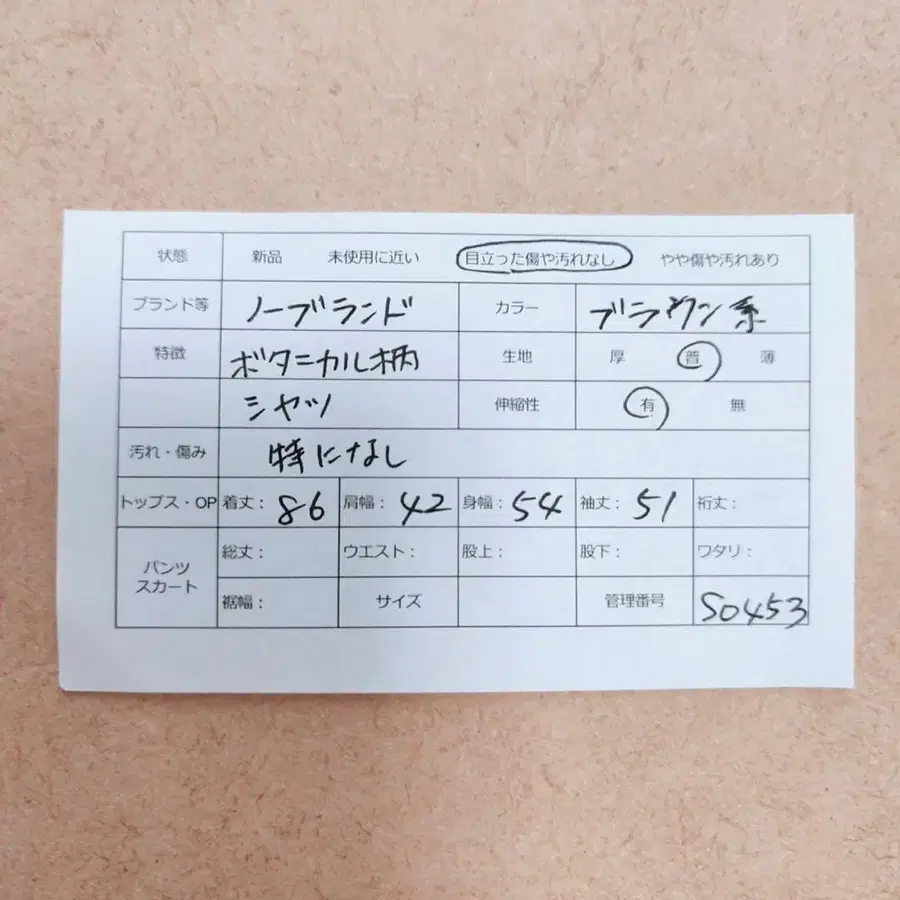 状態 新品 未使用に近い 目立った傷や汚れなし やや傷や汚れあり
ブランド等 ノーブランド カラー ブラウン系
特徴 ボタニカル柄 生地 厚 普 薄
シャツ 伸縮性 有 無
汚れ・傷み 特になし
トップス・OP 着丈: 86 肩幅: 42 身幅: 54 袖丈: 51 裄丈:
パンツ 総丈: ウエスト: 股上: 股下: ワタリ:
スカート
裾幅: サイズ 管理番号 S0453